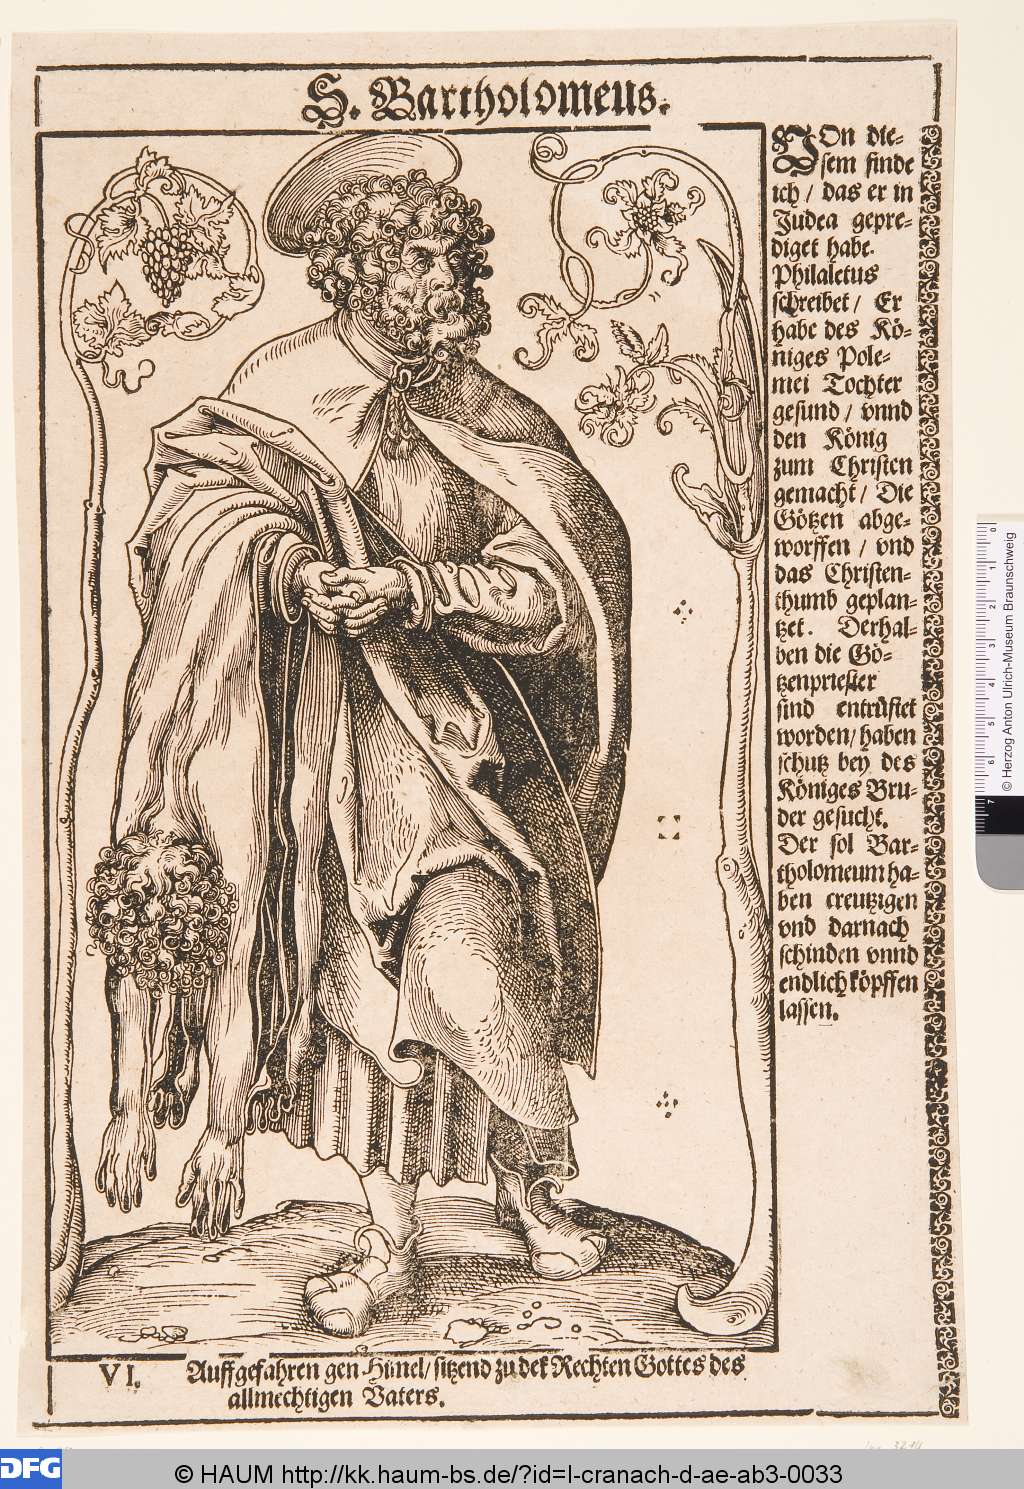 S. Bartholomeus.
VOn die-
sem finde
ich / das er in
Judea gepre-
diget habe.
Philaletus
schreibet / Er
habe des Kö-
niges Pole-
mei Tochter
gesund / vnnd
den König
zum Christen
gemacht / Die
Götzen abge-
worffen / vnd
das Christen-
thumb geplan-
tzet. Derhal-
ben die Gö-
tzenpriester
sind entrüstet
worden / haben
schutz bey des
Königes Bru-
der gesucht.
Der sol Bar-
tholomeum ha-
ben creutzigen
vnd darnach
schinden vnnd
endlich köpffen
lassen.
VI. Auffgefahren gen Himel / sitzend zu der Rechten Gottes des
allmechtigen Vaters.
0 1 2 3 4 5 6 7
© Herzog Anton Ulrich-Museum Braunschweig
DFG
© HAUM http://kk.haum-bs.de/?id=l-cranach-d-ae-ab3-0033